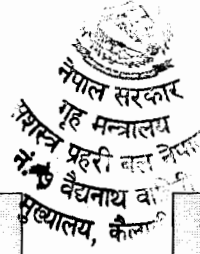 नेपाल सरकार
गृह मन्त्रालय
सशस्त्र प्रहरी बल नेपाल
नं. वैद्यनाथ
मुख्यालय, कैलाली